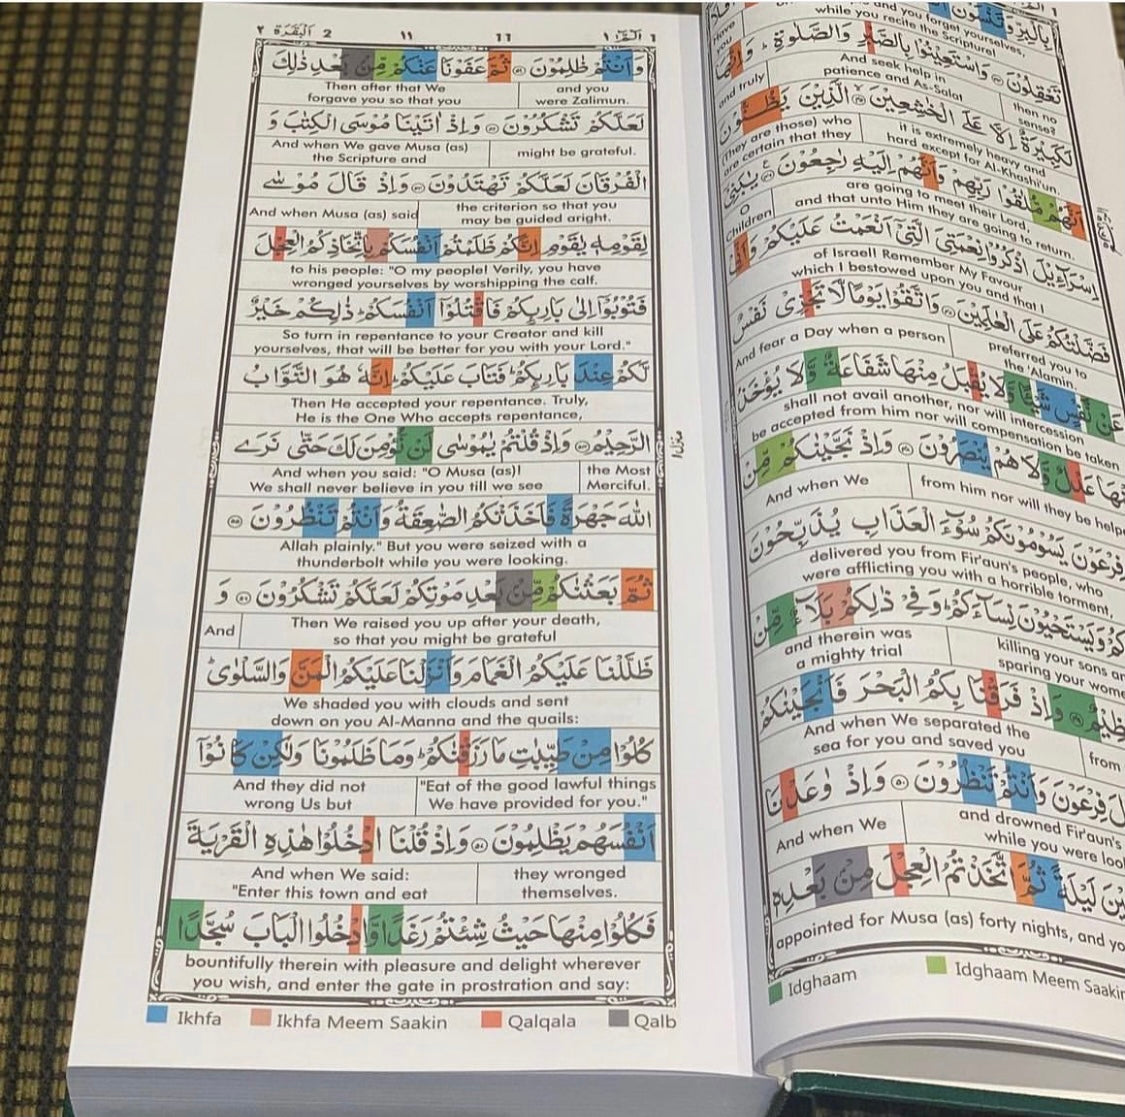 ١ الٓمّٓ ١
بِالْبِرِّ وَتَنْسَوْنَ
and you forget yourselves,
while you recite the Scripture!
تَعْقِلُوْنَ ۝ وَاسْتَعِيْنُوْا بِالصَّبْرِ وَالصَّلٰوةِ ؕ وَاِنَّهَا
then no
sense?
And seek help in
patience and As-Salat
and truly
لَكَبِيْرَةٌ اِلَّا عَلَى الْخٰشِعِيْنَ ۝ الَّذِيْنَ يَظُنُّوْنَ
it is extremely heavy and
hard except for Al-Khashi'un.
(They are those) who
are certain that they
اَنَّهُمْ مُّلٰقُوْا رَبِّهِمْ وَاَنَّهُمْ اِلَيْهِ رٰجِعُوْنَ ۝ يٰبَنِيْٓ
are going to meet their Lord,
and that unto Him they are going to return.
O
Children
اِسْرَآءِيْلَ اذْكُرُوْا نِعْمَتِيَ الَّتِيْٓ اَنْعَمْتُ عَلَيْكُمْ وَاَنِّيْ
of Israel! Remember My Favour
which I bestowed upon you and that I
فَضَّلْتُكُمْ عَلَى الْعٰلَمِيْنَ ۝ وَاتَّقُوْا يَوْمًا لَّا تَجْزِيْ نَفْسٌ
preferred you to
the 'Alamin.
And fear a Day when a person
عَنْ نَّفْسٍ شَيْـًٔا وَّلَا يُقْبَلُ مِنْهَا شَفَاعَةٌ وَّلَا يُؤْخَذُ
shall not avail another, nor will intercession
be accepted from him nor will compensation be taken
مِنْهَا عَدْلٌ وَّلَا هُمْ يُنْصَرُوْنَ ۝ وَاِذْ نَجَّيْنٰكُمْ مِّنْ
from him nor will they be helpe
And when We
فِرْعَوْنَ يَسُوْمُوْنَكُمْ سُوْٓءَ الْعَذَابِ يُذَبِّحُوْنَ
delivered you from Fir'aun's people, who
were afflicting you with a horrible torment,
وَيَسْتَحْيُوْنَ نِسَآءَكُمْ ؕ وَفِيْ ذٰلِكُمْ بَلَآءٌ مِّنْ
killing your sons an
sparing your wome
and therein was
a mighty trial
عَظِيْمٌ ۝ وَاِذْ فَرَقْنَا بِكُمُ الْبَحْرَ فَاَنْجَيْنٰكُمْ
from
And when We separated the
sea for you and saved you
فِرْعَوْنَ وَاَنْتُمْ تَنْظُرُوْنَ ۝ وَاِذْ وٰعَدْنَا
and drowned Fir'aun's
while you were loo
And when We
لَيْلَةً ثُمَّ اتَّخَذْتُمُ الْعِجْلَ مِنْۢ بَعْدِهٖ
appointed for Musa (as) forty nights, and yo
Idghaam Idghaam Meem Saakin
الٓمّٓ ١ 11 ١١ 2 اَلْبَقَرَة ٢
وَاَنْتُمْ ظٰلِمُوْنَ ۝ ثُمَّ عَفَوْنَا عَنْكُمْ مِّنْۢ بَعْدِ ذٰلِكَ
and you
were Zalimun.
Then after that We
forgave you so that you
لَعَلَّكُمْ تَشْكُرُوْنَ ۝ وَاِذْ اٰتَيْنَا مُوْسَى الْكِتٰبَ وَ
might be grateful.
And when We gave Musa (as)
the Scripture and
الْفُرْقَانَ لَعَلَّكُمْ تَهْتَدُوْنَ ۝ وَاِذْ قَالَ مُوْسٰى
the criterion so that you
may be guided aright.
And when Musa (as) said
لِقَوْمِهٖ يٰقَوْمِ اِنَّكُمْ ظَلَمْتُمْ اَنْفُسَكُمْ بِاتِّخَاذِكُمُ الْعِجْلَ
to his people: "O my people! Verily, you have
wronged yourselves by worshipping the calf.
فَتُوْبُوْٓا اِلٰى بَارِئِكُمْ فَاقْتُلُوْٓا اَنْفُسَكُمْ ؕ ذٰلِكُمْ خَيْرٌ
So turn in repentance to your Creator and kill
yourselves, that will be better for you with your Lord."
لَّكُمْ عِنْدَ بَارِئِكُمْ ؕ فَتَابَ عَلَيْكُمْ ؕ اِنَّهٗ هُوَ التَّوَّابُ
Then He accepted your repentance. Truly,
He is the One Who accepts repentance,
الرَّحِيْمُ ۝ وَاِذْ قُلْتُمْ يٰمُوْسٰى لَنْ نُّؤْمِنَ لَكَ حَتّٰى نَرَى
the Most
Merciful.
And when you said: "O Musa (as)!
We shall never believe in you till we see
منزل ١
اللّٰهَ جَهْرَةً فَاَخَذَتْكُمُ الصّٰعِقَةُ وَاَنْتُمْ تَنْظُرُوْنَ ۝
Allah plainly." But you were seized with a
thunderbolt while you were looking.
ثُمَّ بَعَثْنٰكُمْ مِّنْۢ بَعْدِ مَوْتِكُمْ لَعَلَّكُمْ تَشْكُرُوْنَ ۝ وَ
Then We raised you up after your death,
so that you might be grateful
And
ظَلَّلْنَا عَلَيْكُمُ الْغَمَامَ وَاَنْزَلْنَا عَلَيْكُمُ الْمَنَّ وَالسَّلْوٰى ؕ
We shaded you with clouds and sent
down on you Al-Manna and the quails:
كُلُوْا مِنْ طَيِّبٰتِ مَا رَزَقْنٰكُمْ ؕ وَمَا ظَلَمُوْنَا وَلٰكِنْ كَانُوْٓا
"Eat of the good lawful things
We have provided for you."
And they did not
wrong Us but
اَنْفُسَهُمْ يَظْلِمُوْنَ ۝ وَاِذْ قُلْنَا ادْخُلُوْا هٰذِهِ الْقَرْيَةَ
they wronged
themselves.
And when We said:
"Enter this town and eat
فَكُلُوْا مِنْهَا حَيْثُ شِئْتُمْ رَغَدًا وَّادْخُلُوا الْبَابَ سُجَّدًا
bountifully therein with pleasure and delight wherever
you wish, and enter the gate in prostration and say:
Ikhfa Ikhfa Meem Saakin Qalqala Qalb